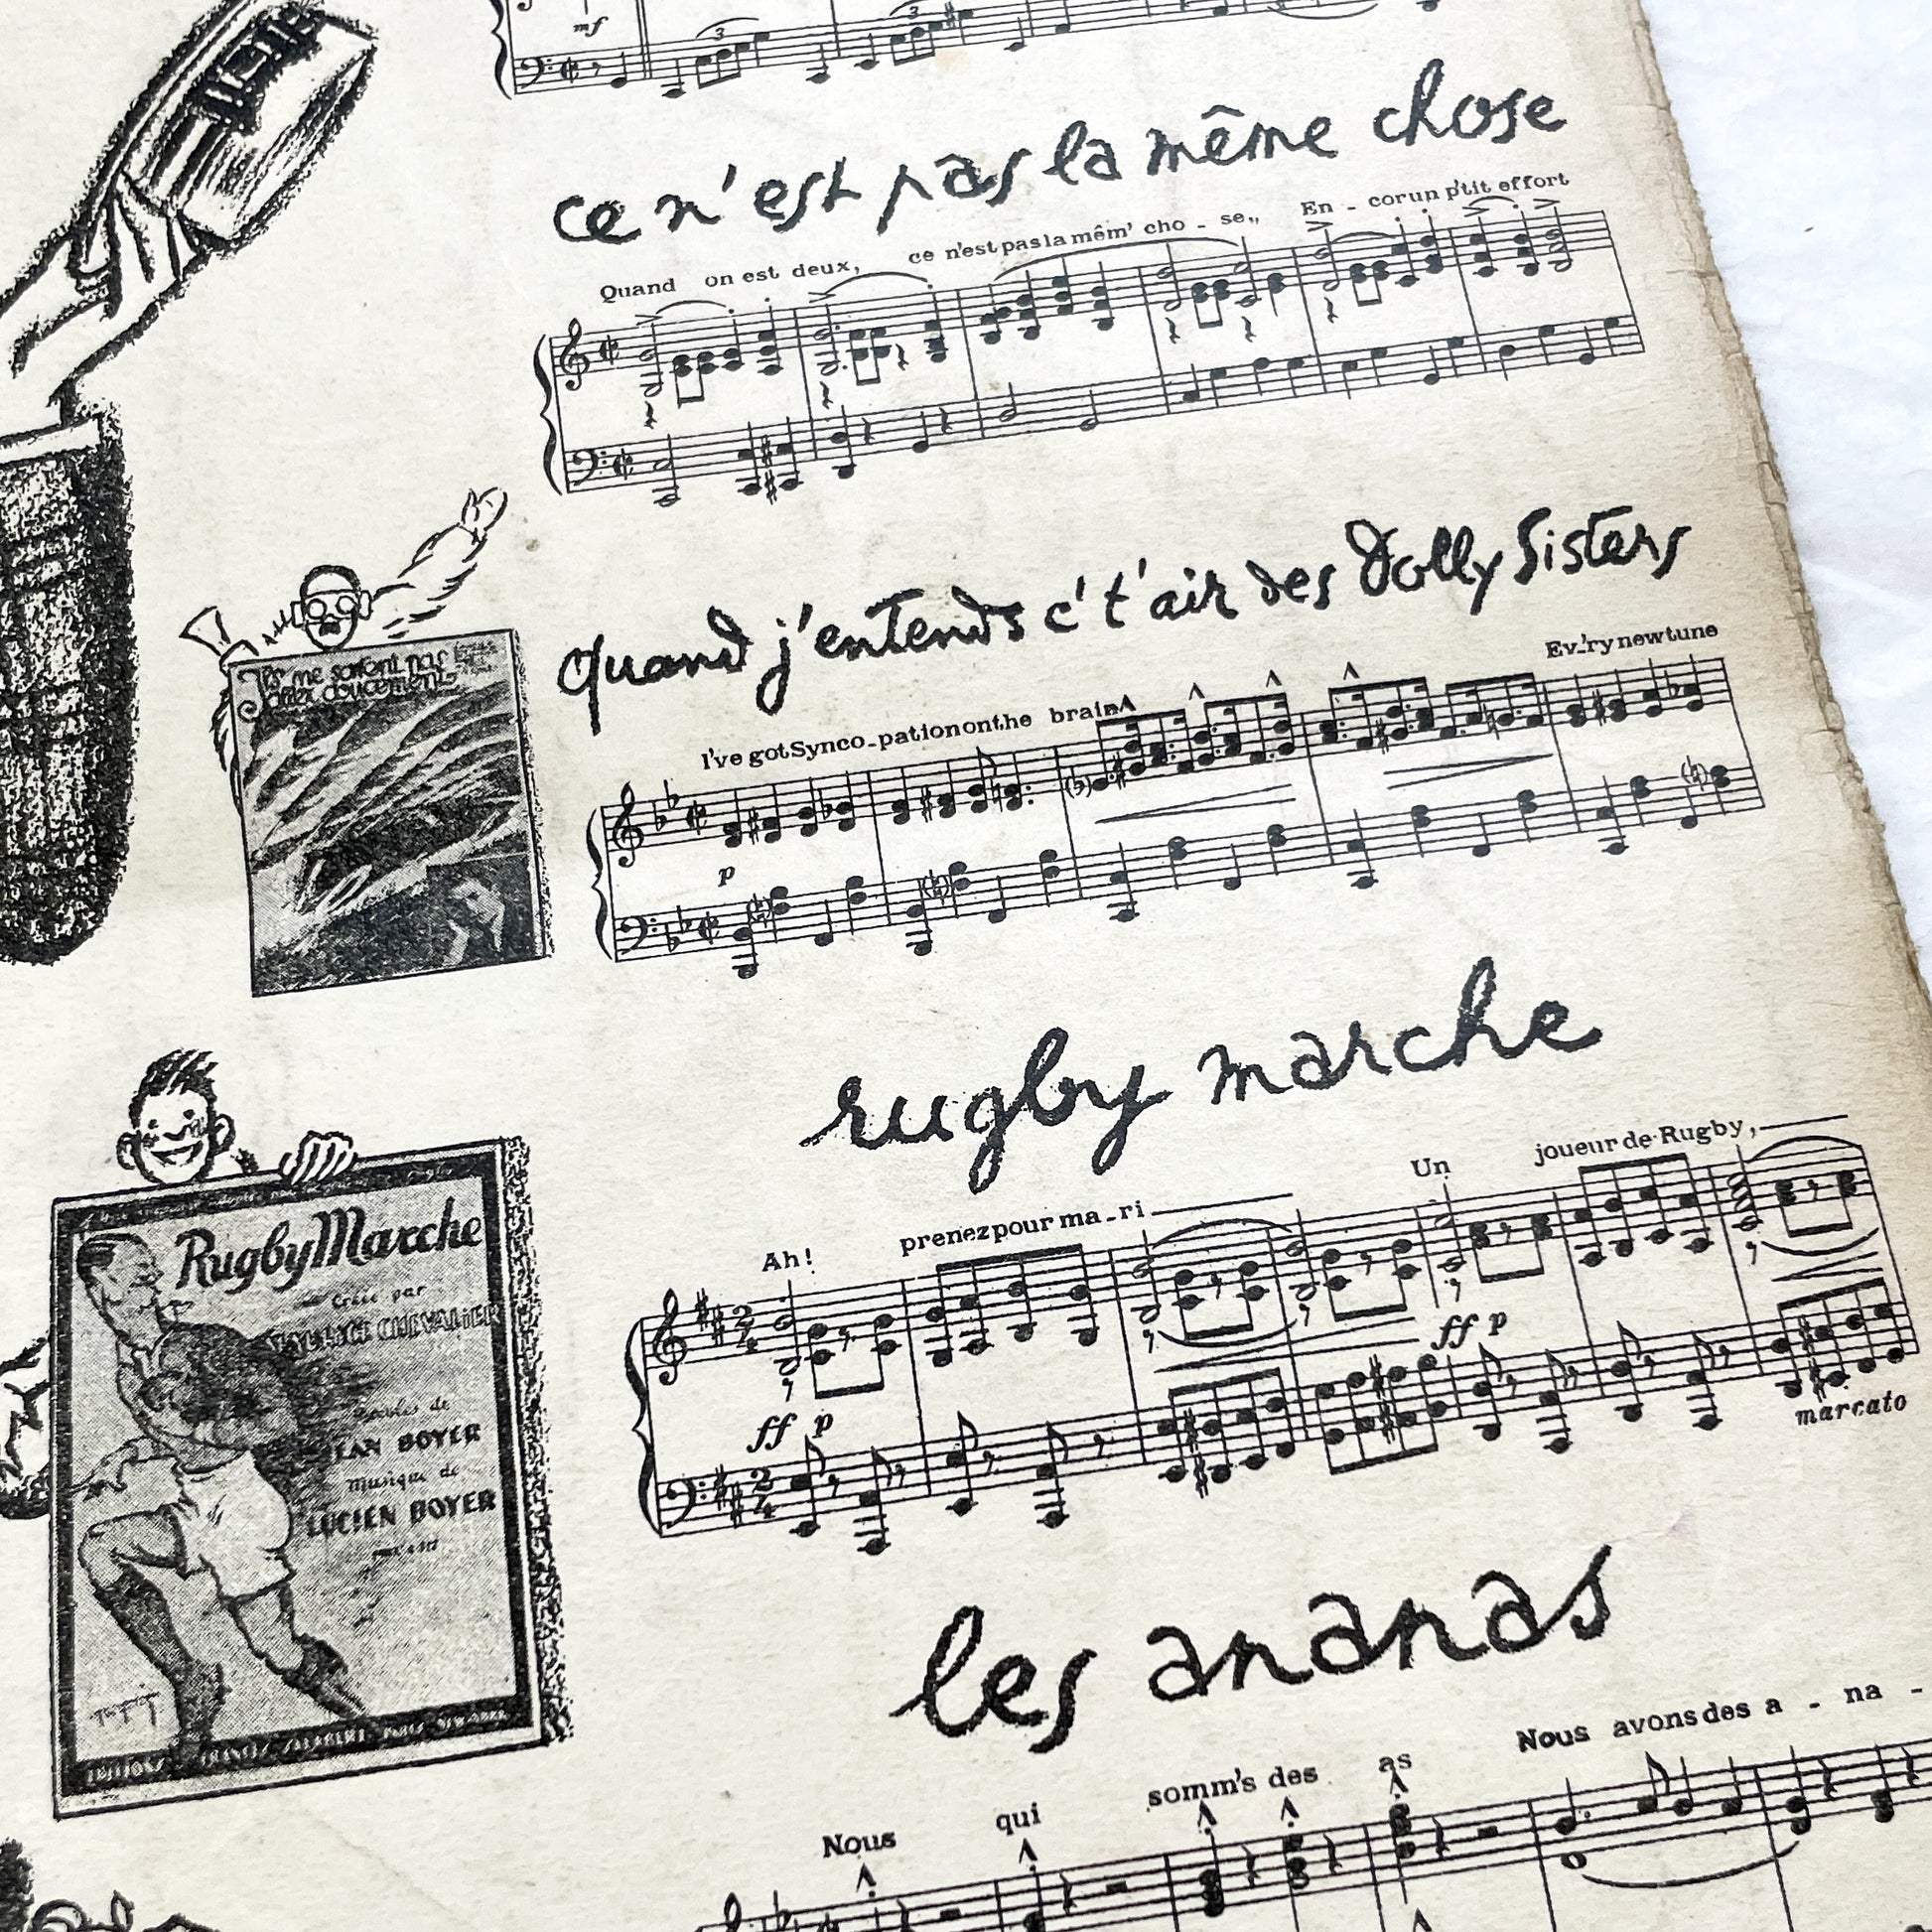 mf
3
3
ce n'est pas la même chose
Quand on est deux, ce n'est pas la mêm' cho - se,, En - corun p'tit effort
quand j'entends c't'air des Dolly Sisters
I've got Synco-pation on the brain Ev'-ry new tune
p
Ils me sortont pas
aller doucement
rugby marche
Ah! prenez pour ma-ri Un joueur de Rugby,
ff p
ff p
marcato
Rugby Marche
Créée par
MAURICE CHEVALIER
Paroles de
JEAN BOYER
Musique de
LUCIEN BOYER
EDITIONS FRANCIS SALABERT PARIS NEW-YORK
les ananas
Nous qui somm's des as Nous avons des a - na -